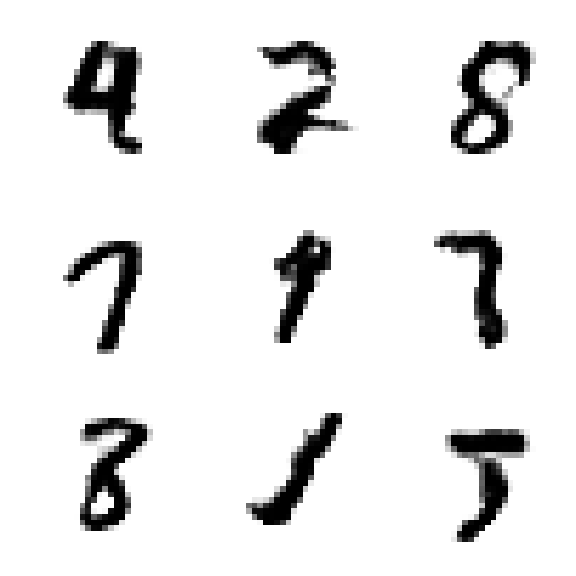 4 2 8
7 9 7
8 1 5